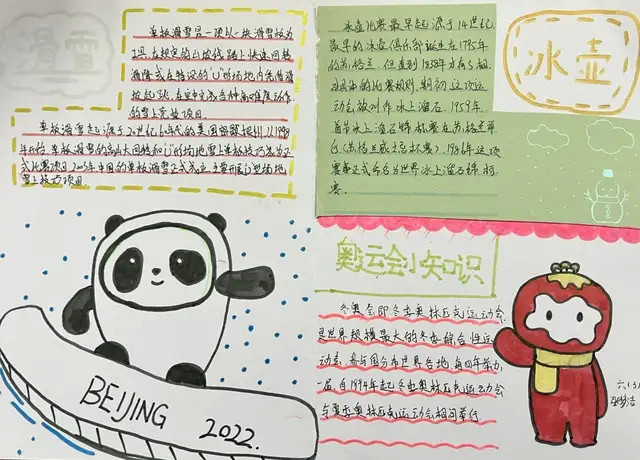 滑雪
单板滑雪是一项以一块滑雪板为
工具,在规定的山坡线路上快速回转
滑降或在特设的"U"形场地内凭借滑
坡起飞,在空中完成各种高难度动作
的雪上竞技项目.
单板滑雪起源于20世纪60年代的美国密歇根州,1998
年开始,单板滑雪的高山大回转和U形场地雪上单板技巧成为正
式比赛项目.2003年,中国的单板滑雪正式成立,主要开展U型场地
雪上技巧项目.
冰壶比赛最早起源于14世纪,
最早的冰壶俱乐部诞生在1795年
的苏格兰.但直到1838年才有了相
对应的比赛规则.期初这项运
动会被叫作冰上溜石.1959年.
首节冰上溜石锦标赛在苏格兰举
办(苏格兰威士忌杯赛).1986年这项
赛事正式命名为世界冰上溜石锦标
赛.
冰壶
奥运会小知识
冬奥会即冬季奥林匹克运动会,
是世界规模最大的冬季综合性运
动赛,参与国分布世界各地,每四年举办
一届.自1994年起冬季奥林匹克运动会
与夏季奥林匹克运动会相间举行
六(3)
BEIJING 2022.